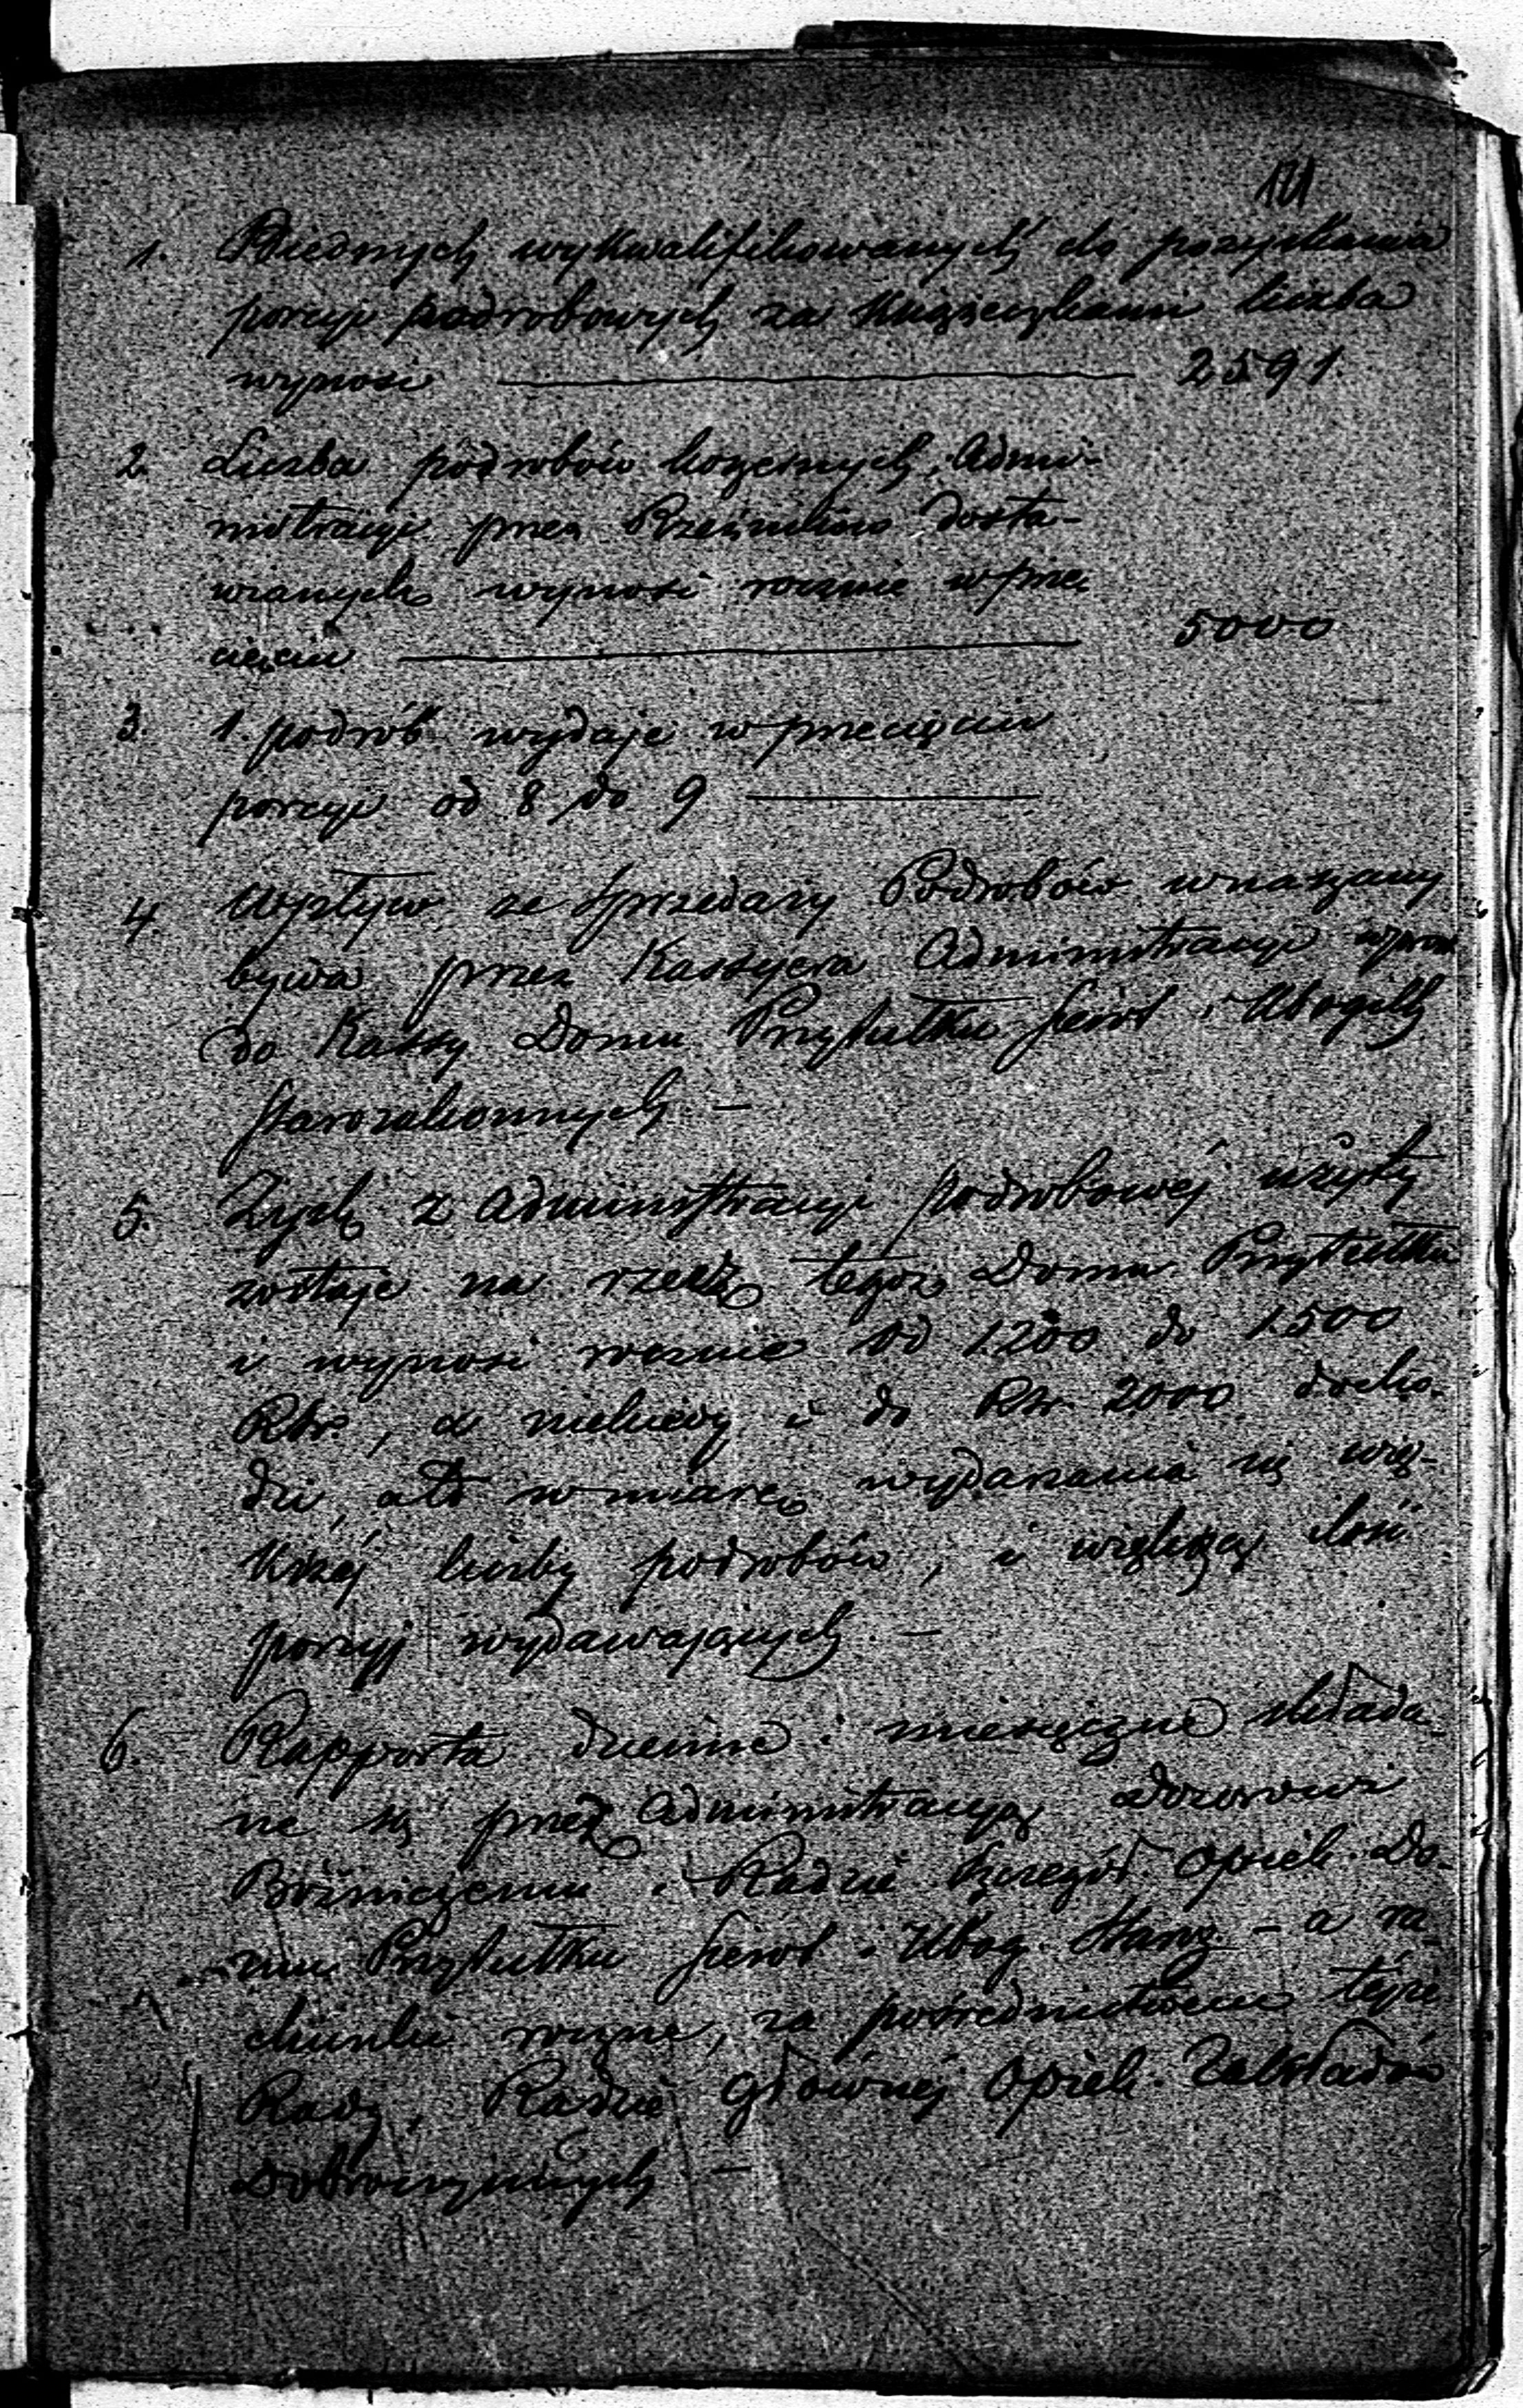 1. Biednych wykwalifikowanych do pozyskania
porcyi podrobowych za książeczkami liczba
wynosi 2591.
2. Liczba podrobów koszernych, Admi-
nistracyi przez Rzeźników dosta-
wianych wynosi rocznie w prze
cięciu 5000
3. 1. podrób wydaje w przecięciu
porcyi od 8 do 9
4 Wpływ ze sprzedaży Podrobów wnaszany
bywa przez Kassyera Administracyi wprost
do Kassy Domu Przytułku Sierot i Ubogich
Starozakonnych —
5. Zysk z Administracyi podrobowéj użyty
zostaje na rzecz tegoż Domu Przytułku
i wynosi rocznie od 1200 do 1500
Rbr., a niekiedy i do Rbr. 2000 docho-
dzi, ato w miarę wydarzania się wię-
kszéj liczby podrobów, i większą ilość
porcyj wydawających —
6. Rapporta dzienne i miesięczne składa
ne są przez Administracyą Dozorowi
Bóżniczemu i Radzie Szczegół. Opiek. Do-
mu Przytułku Sierot i Ubog. Staroz. – a ra-
chunki roczne, za pośrednictwem tejże
Rady, Radzie Głównéj Opiek. Zakładów
Dobroczynnych —